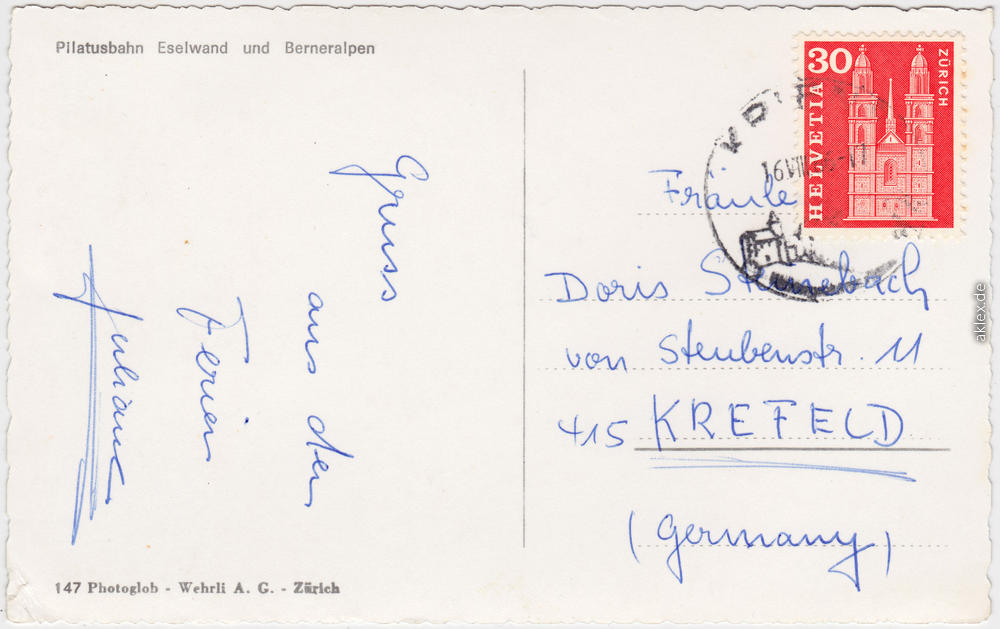 Pilatusbahn Eselwand und Berneralpen
Gruss
aus den
Ferien
147 Photoglob - Wehrli A. G. - Zürich
30
HELVETIA
ZÜRICH
Fräule
Doris
von Steubenstr. 11
415 KREFELD
(Germany)
aklex.de